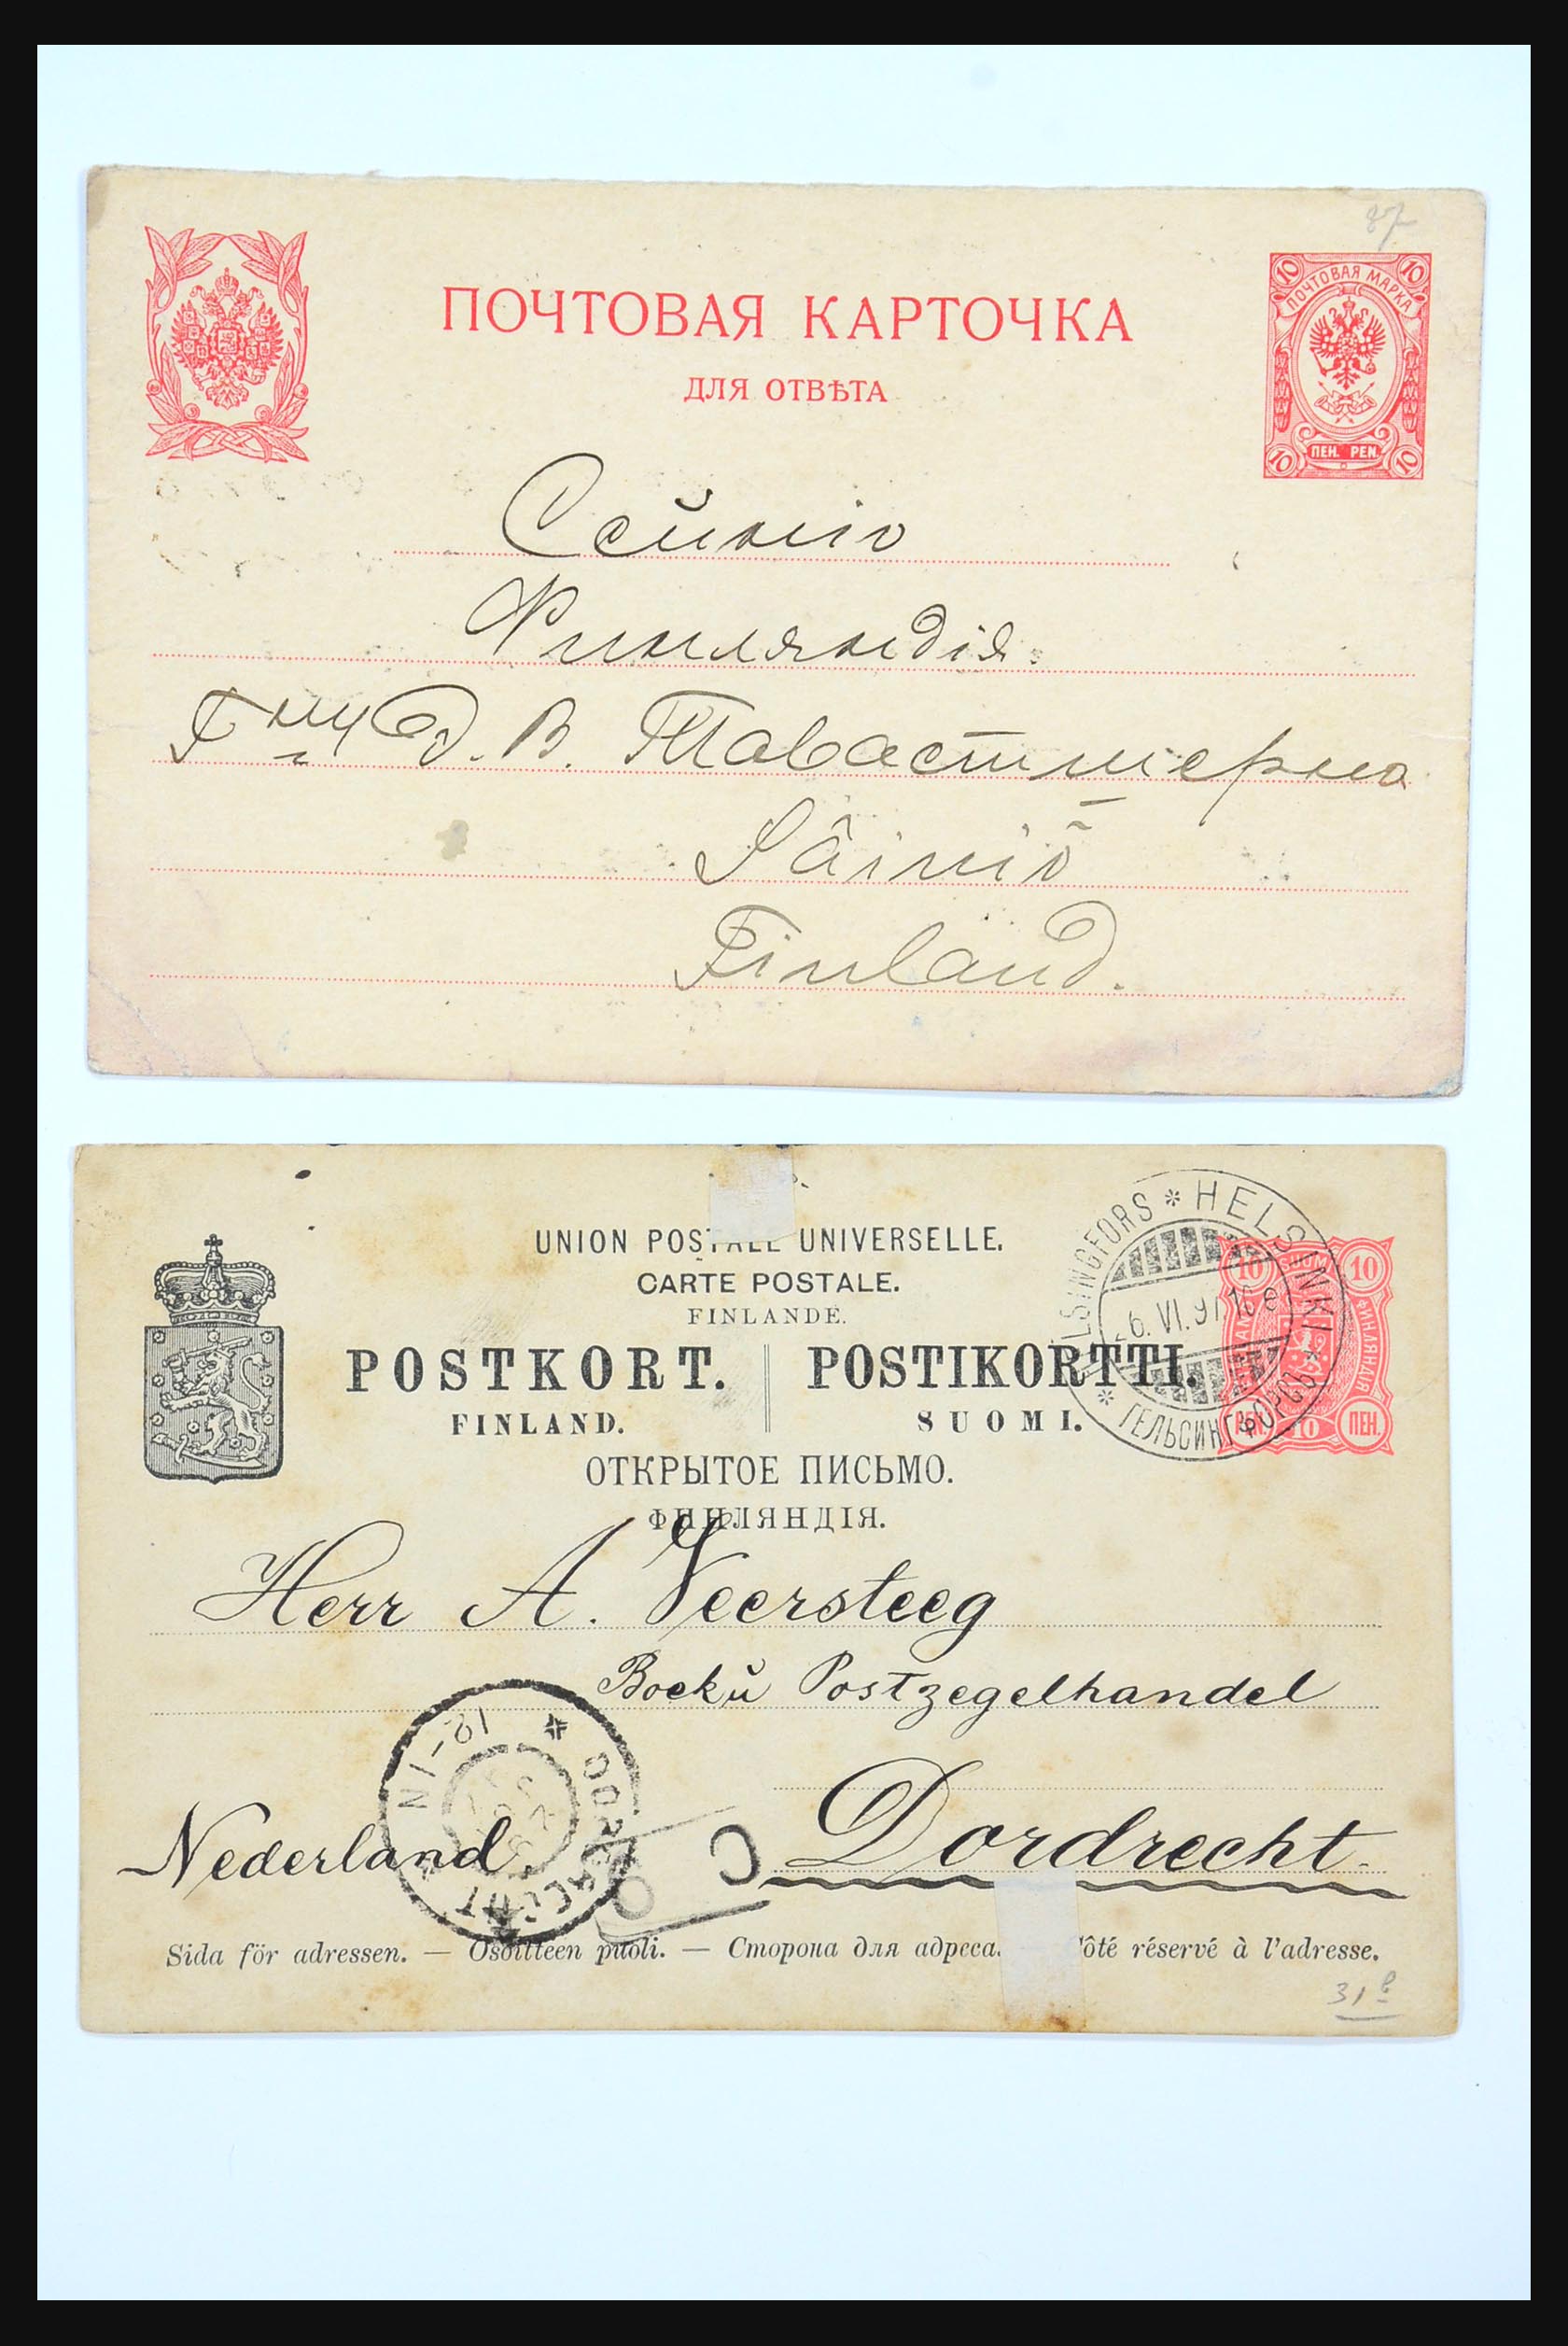 87
ПОЧТОВАЯ КАРТОЧКА
ДЛЯ ОТВѢТА
10 ПОЧТОВАЯ МАРКА 10
10 ПЕН. PEN. 10
Сейніо
Финляндія.
Г В. Тавастшерна
Säiniö
Finland.
UNION POSTALE UNIVERSELLE.
CARTE POSTALE.
FINLANDE.
POSTKORT. POSTIKORTTI.
FINLAND. SUOMI.
ОТКРЫТОЕ ПИСЬМО.
ФИНЛЯНДІЯ.
HELSINGFORS * HELSINKI * ГЕЛЬСИНГФОРСЪ *
6.VI.97
10 10
ФИНЛЯНДІЯ
PEN. 10 ПЕН.
Herr A. Veersteeg
Postzegelhandel
Dordrecht.
Nederland.
DORDRECHT
12-1N
Sida för adressen. — Osoitteen puoli. — Сторона для адреса. ôté réservé à l'adresse.
31